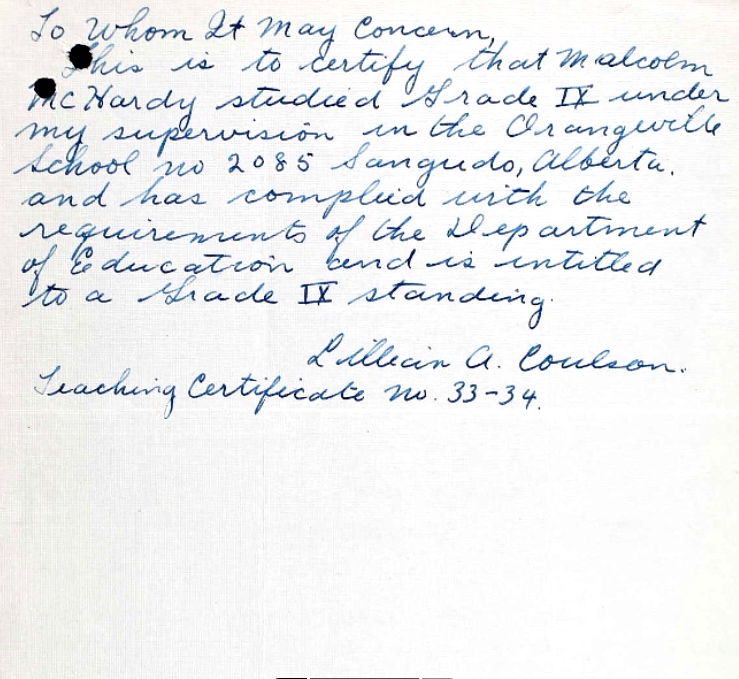 To Whom It May Concern,
This is to certify that Malcolm
McHardy studied Grade IX under
my supervision in the Orangeville
School no 2085 Sangudo, Alberta.
and has complied with the
requirements of the Department
of Education and is intitled
to a Grade IX standing.
Lillian A. Coulson.
Teaching Certificate no. 33-34.